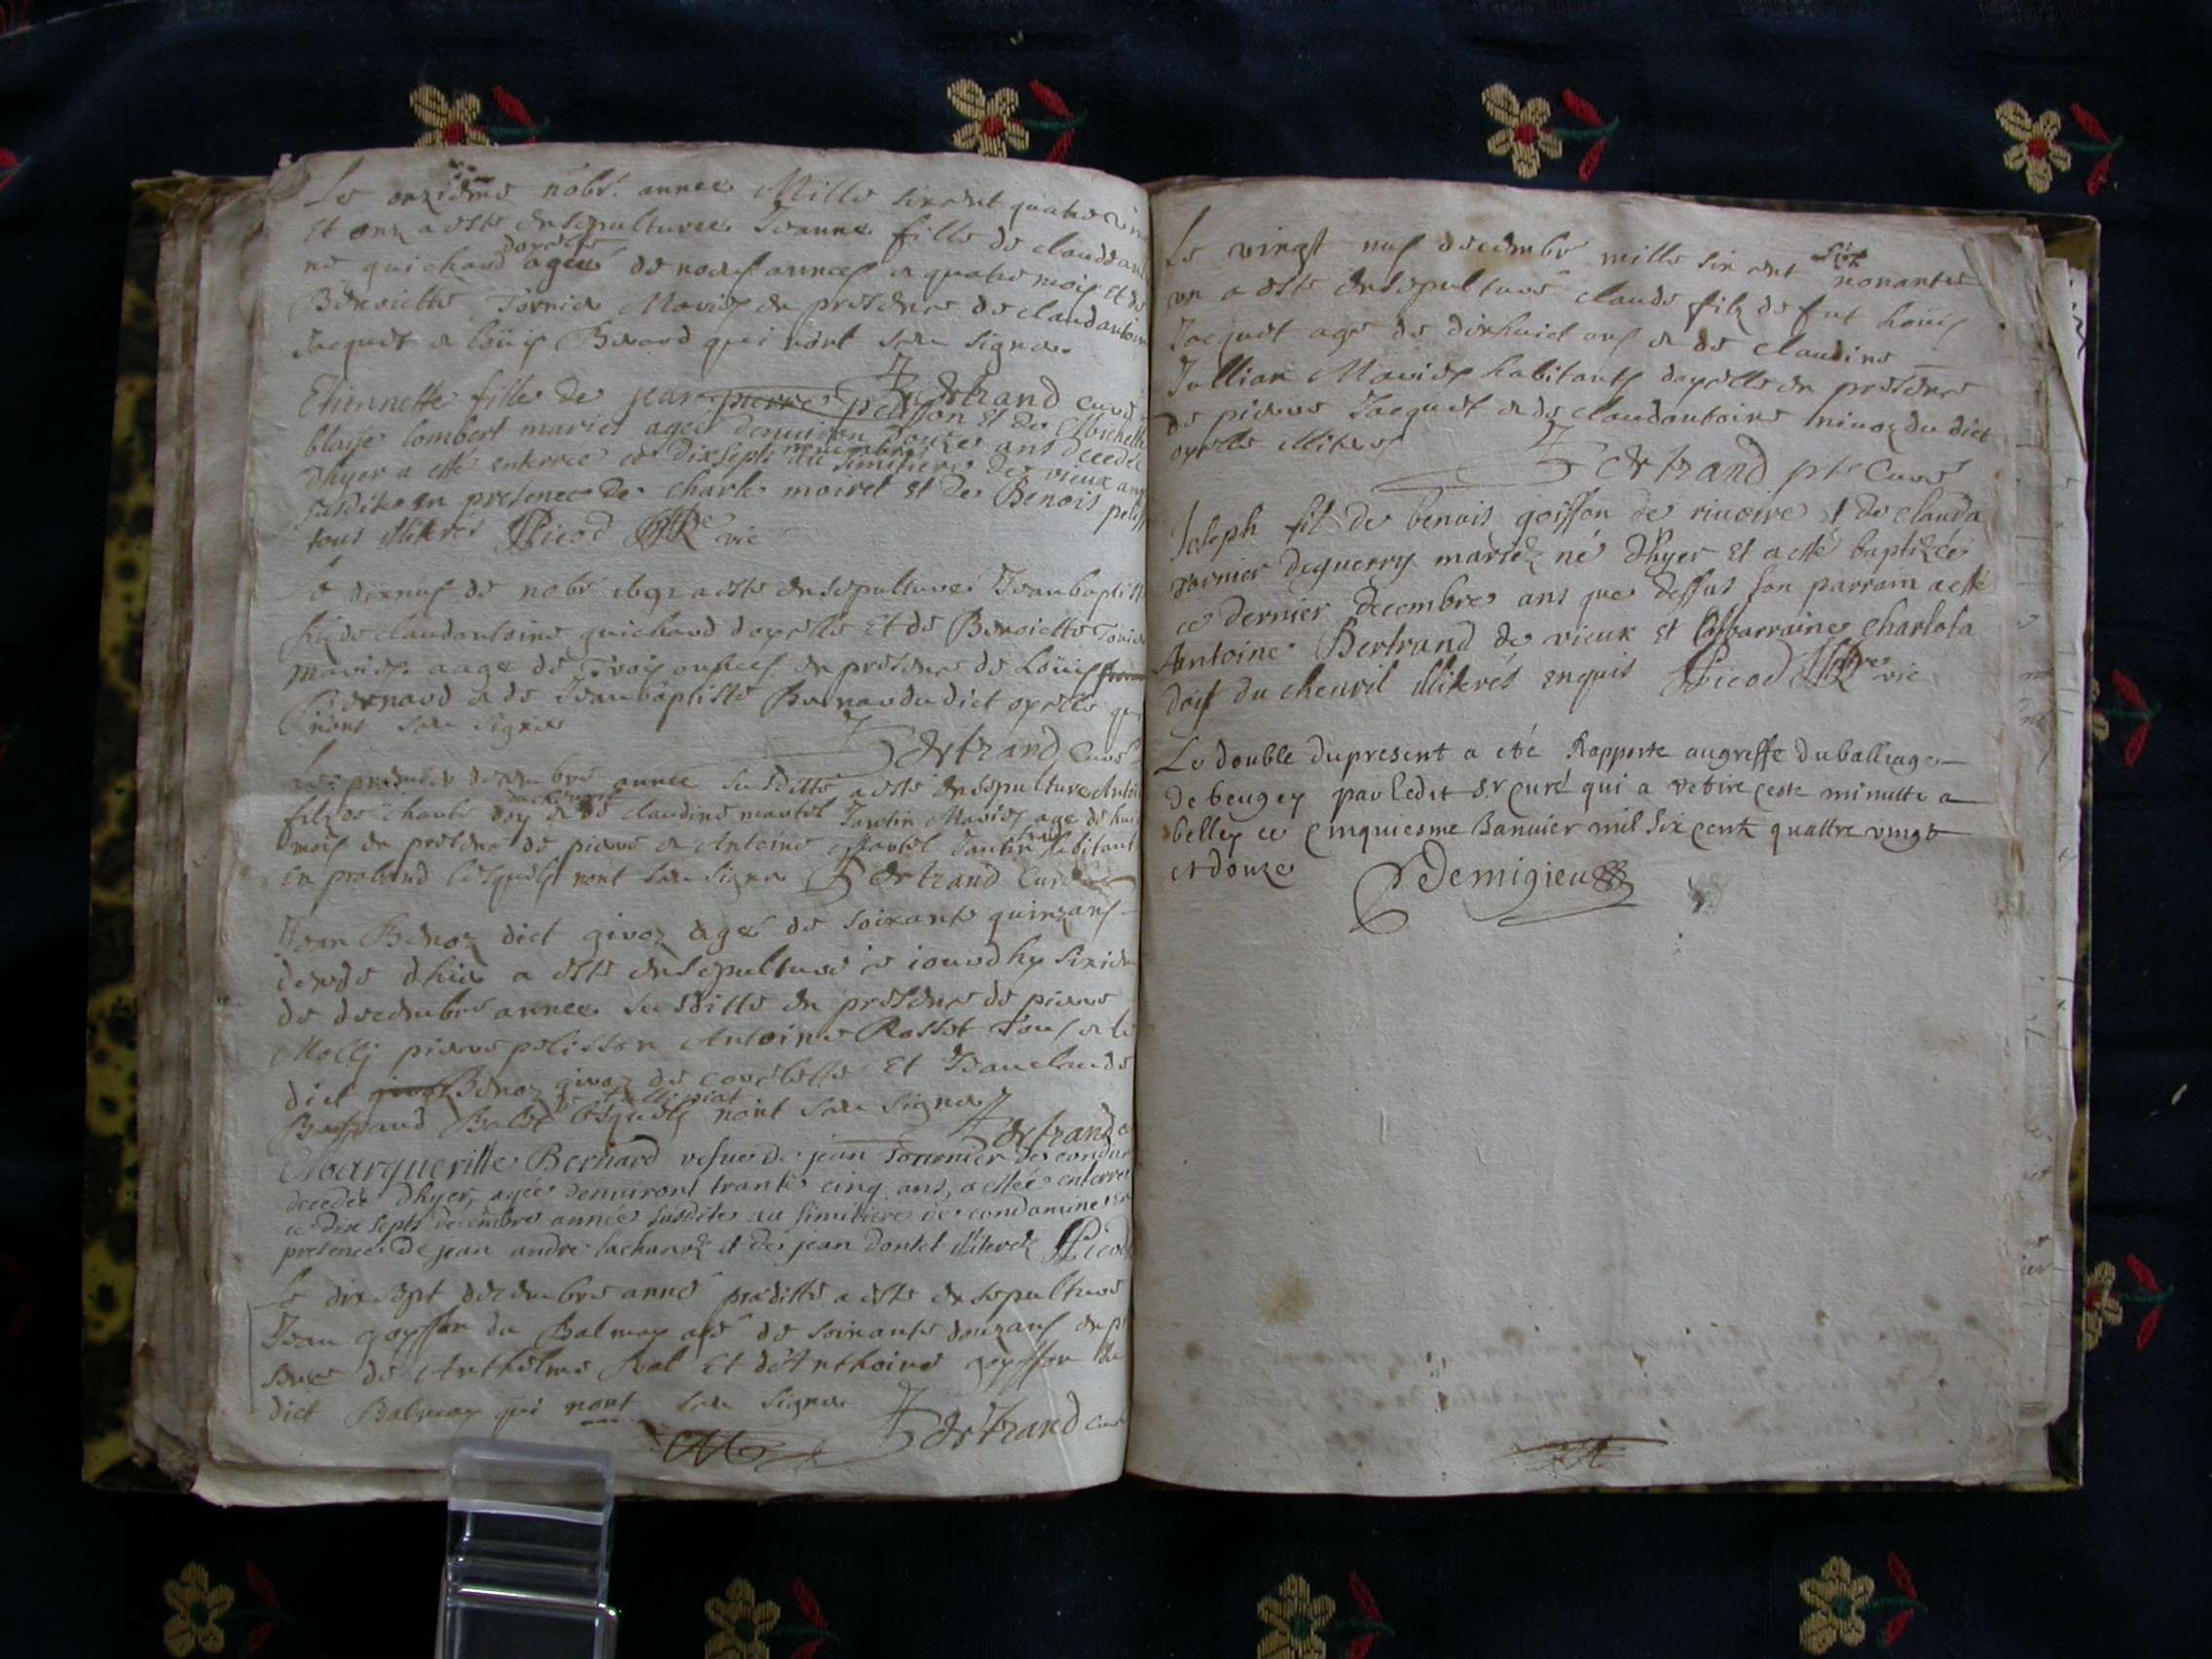 Le onzieme nobr. annee Mille six cent quatre vin
Et onz a este ensepulturee Jeanne fille de claudean
doyselle
ne guichard agee de neuf annees et quatre mois et de
Benoiette Tornier Mariez en presence de claudantoine
Jacquet et loüis Berard qui n'ont sceu signer
Bertrand curé
Etiennette fille de jean pierre pelisson Et de Michelle
blaise lombert mariez agee denuiron douze ans decedee
nouembre
dhyer a esté enterree ce dix sept au simitiere de vieux an
susdite en presence de charle moiret et de Benois peliss
tous illiteres Picod ptre vic
Le dixneuf de nobr 1691 a este ensepulture Jeanbaptist
filz de claudantoine guichard doyselle Et de Benoiette Tornier
mariez aage de Trois annees en presence de Loüis
Bernard et de Jeanbaptiste Bernard du dict oyselle qui
n'ont sceu signer
Bertrand Curé
Le premier decembre annee susditte a este ensepulture Antoi
filz de charle doy et de claudine martel Jantin Mariez age de huit
mois en presence de pierre et Antoine Martel Jantin habitant
En pralund lesquels n'ont sceu signer Bertrand Curé
Jean Benoz dict givoz agé de soixante quinzans
decede dhier a este ensepulture ce iourdhy sixiem
de decembre annee susditte en presence de pierre
Molly pierre pelisson Antoine Rosset Tous et le
dict Benoz givoz de corcelette Et Jeanclaude
Bertrand Balet lesquels n'ont sceu signer
Bertrand c
Margueritte Bernard vefue de jean Tournier de condam
decedee dhyer, agée denuiront trante cinq ans, a estée enterree
ce dix sept decembre année susdite au simitiere de condamine en
presence de jean andre lachanoz et de jean dontet illiterez Picod
Le dix sept decembre anné praditte a este ensepulture
Jean goyffon du Balmay agé de soixante douzans en pr
sence de Anthelme Bal Et d'Anthoine goyffon du
dict Balmay qui n'ont sceu signer
Bertrand curé
Le vingt neuf decembre mille six cent nonante
un a este ensepulturé claude filz de fut loüis
Jacquet age de dixhuict ans et de claudine
Jullian Mariez habitants doyselle en presence
de pierre Jacquet et de claudantoine nivoz du dict
oyselle illiteres
Bertrand ptr Curé
Joseph fil de benois goiffon de riuoire et de clauda
varnier deguerry mariez né dhyer Et a esté baptizée
ce dernier decembre ans que dessus son parrain a esté
Antoine Bertrand de vieux et la marraine charlota
doist du cheuril illiterés enquis Picod ptre vic
Le double du present a eté Rapporte au greffe du balliage
de beugey par ledit Sr curé qui a retiré ceste minutte a
belley ce cinquiesme Januier mil six cent quattre vingt
et douze Demigieu